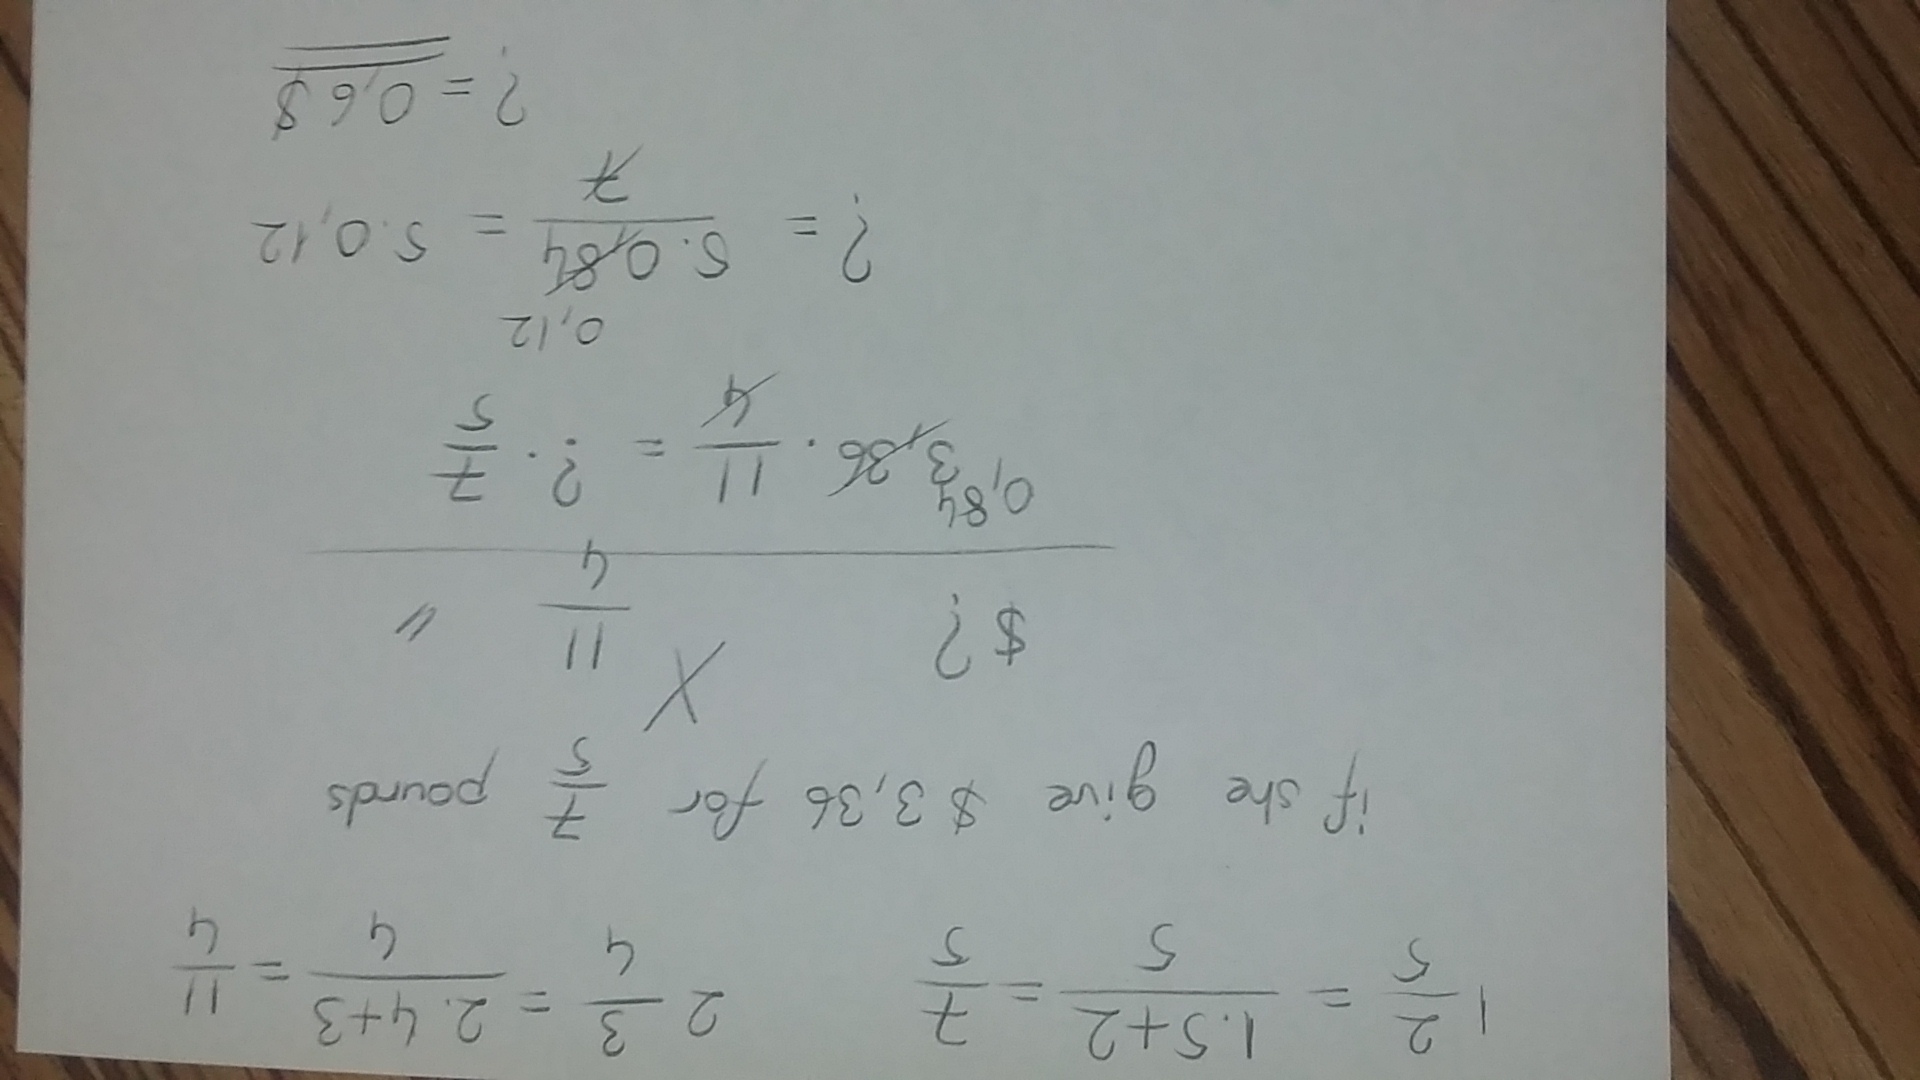 1 2/5 = (1.5+2)/5 = 7/5    2 3/4 = (2.4+3)/4 = 11/4
if she give $ 3,36 for 7/5 pounds
X
$ ? 11/4 "
0,84
3,36 . 11/4 = ? . 7/5
0,12
? = (5.0,84)/7 = 5.0,12
? = 0,6 $